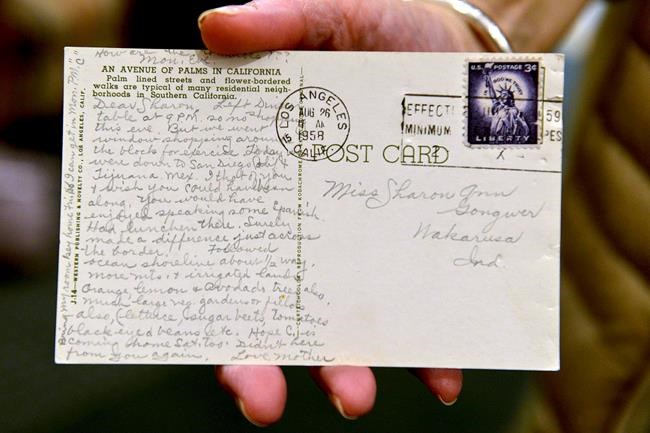 How are the
Mon. Eve.
AN AVENUE OF PALMS IN CALIFORNIA
Palm lined streets and flower-bordered
walks are typical of many residential neigh-
borhoods in Southern California.
Dear Sharon, Left Din
table at 9 P.M. so no shop
this eve. But we went
window shopping around
the block for exercise. Today we
were down to San Diego &
Tijuana Mex. I tho't of you
& wish you could have been
along. You would have
enjoyed speaking some Spanish.
Had luncheon there. Surely
made a difference just across
the border. Followed
ocean shoreline about 1/2 way,
more mts. & irrigated land of
Orange lemon & Avocado trees also,
much large veg. gardens or fields
also, (lettuce, sugar beets, tomatoes
black-eyed beans etc. Hope C. is
coming home Sat. too. Didn't hear
from you again. Love Mother
my room key home
I can get in Mon. P.M.
J.14—WESTERN PUBLISHING & NOVELTY CO., LOS ANGELES, CALIF.
REPRODUCTION FROM KODACHROME
LOS ANGELES
AUG 26
1958
CALIF.
EFFECTI
MINIMUM
59
PES
U.S. POSTAGE 3¢
IN GOD WE TRUST
LIBERTY
POST CARD
Miss Sharon Ann
Gongwer
Wakarusa
Ind.